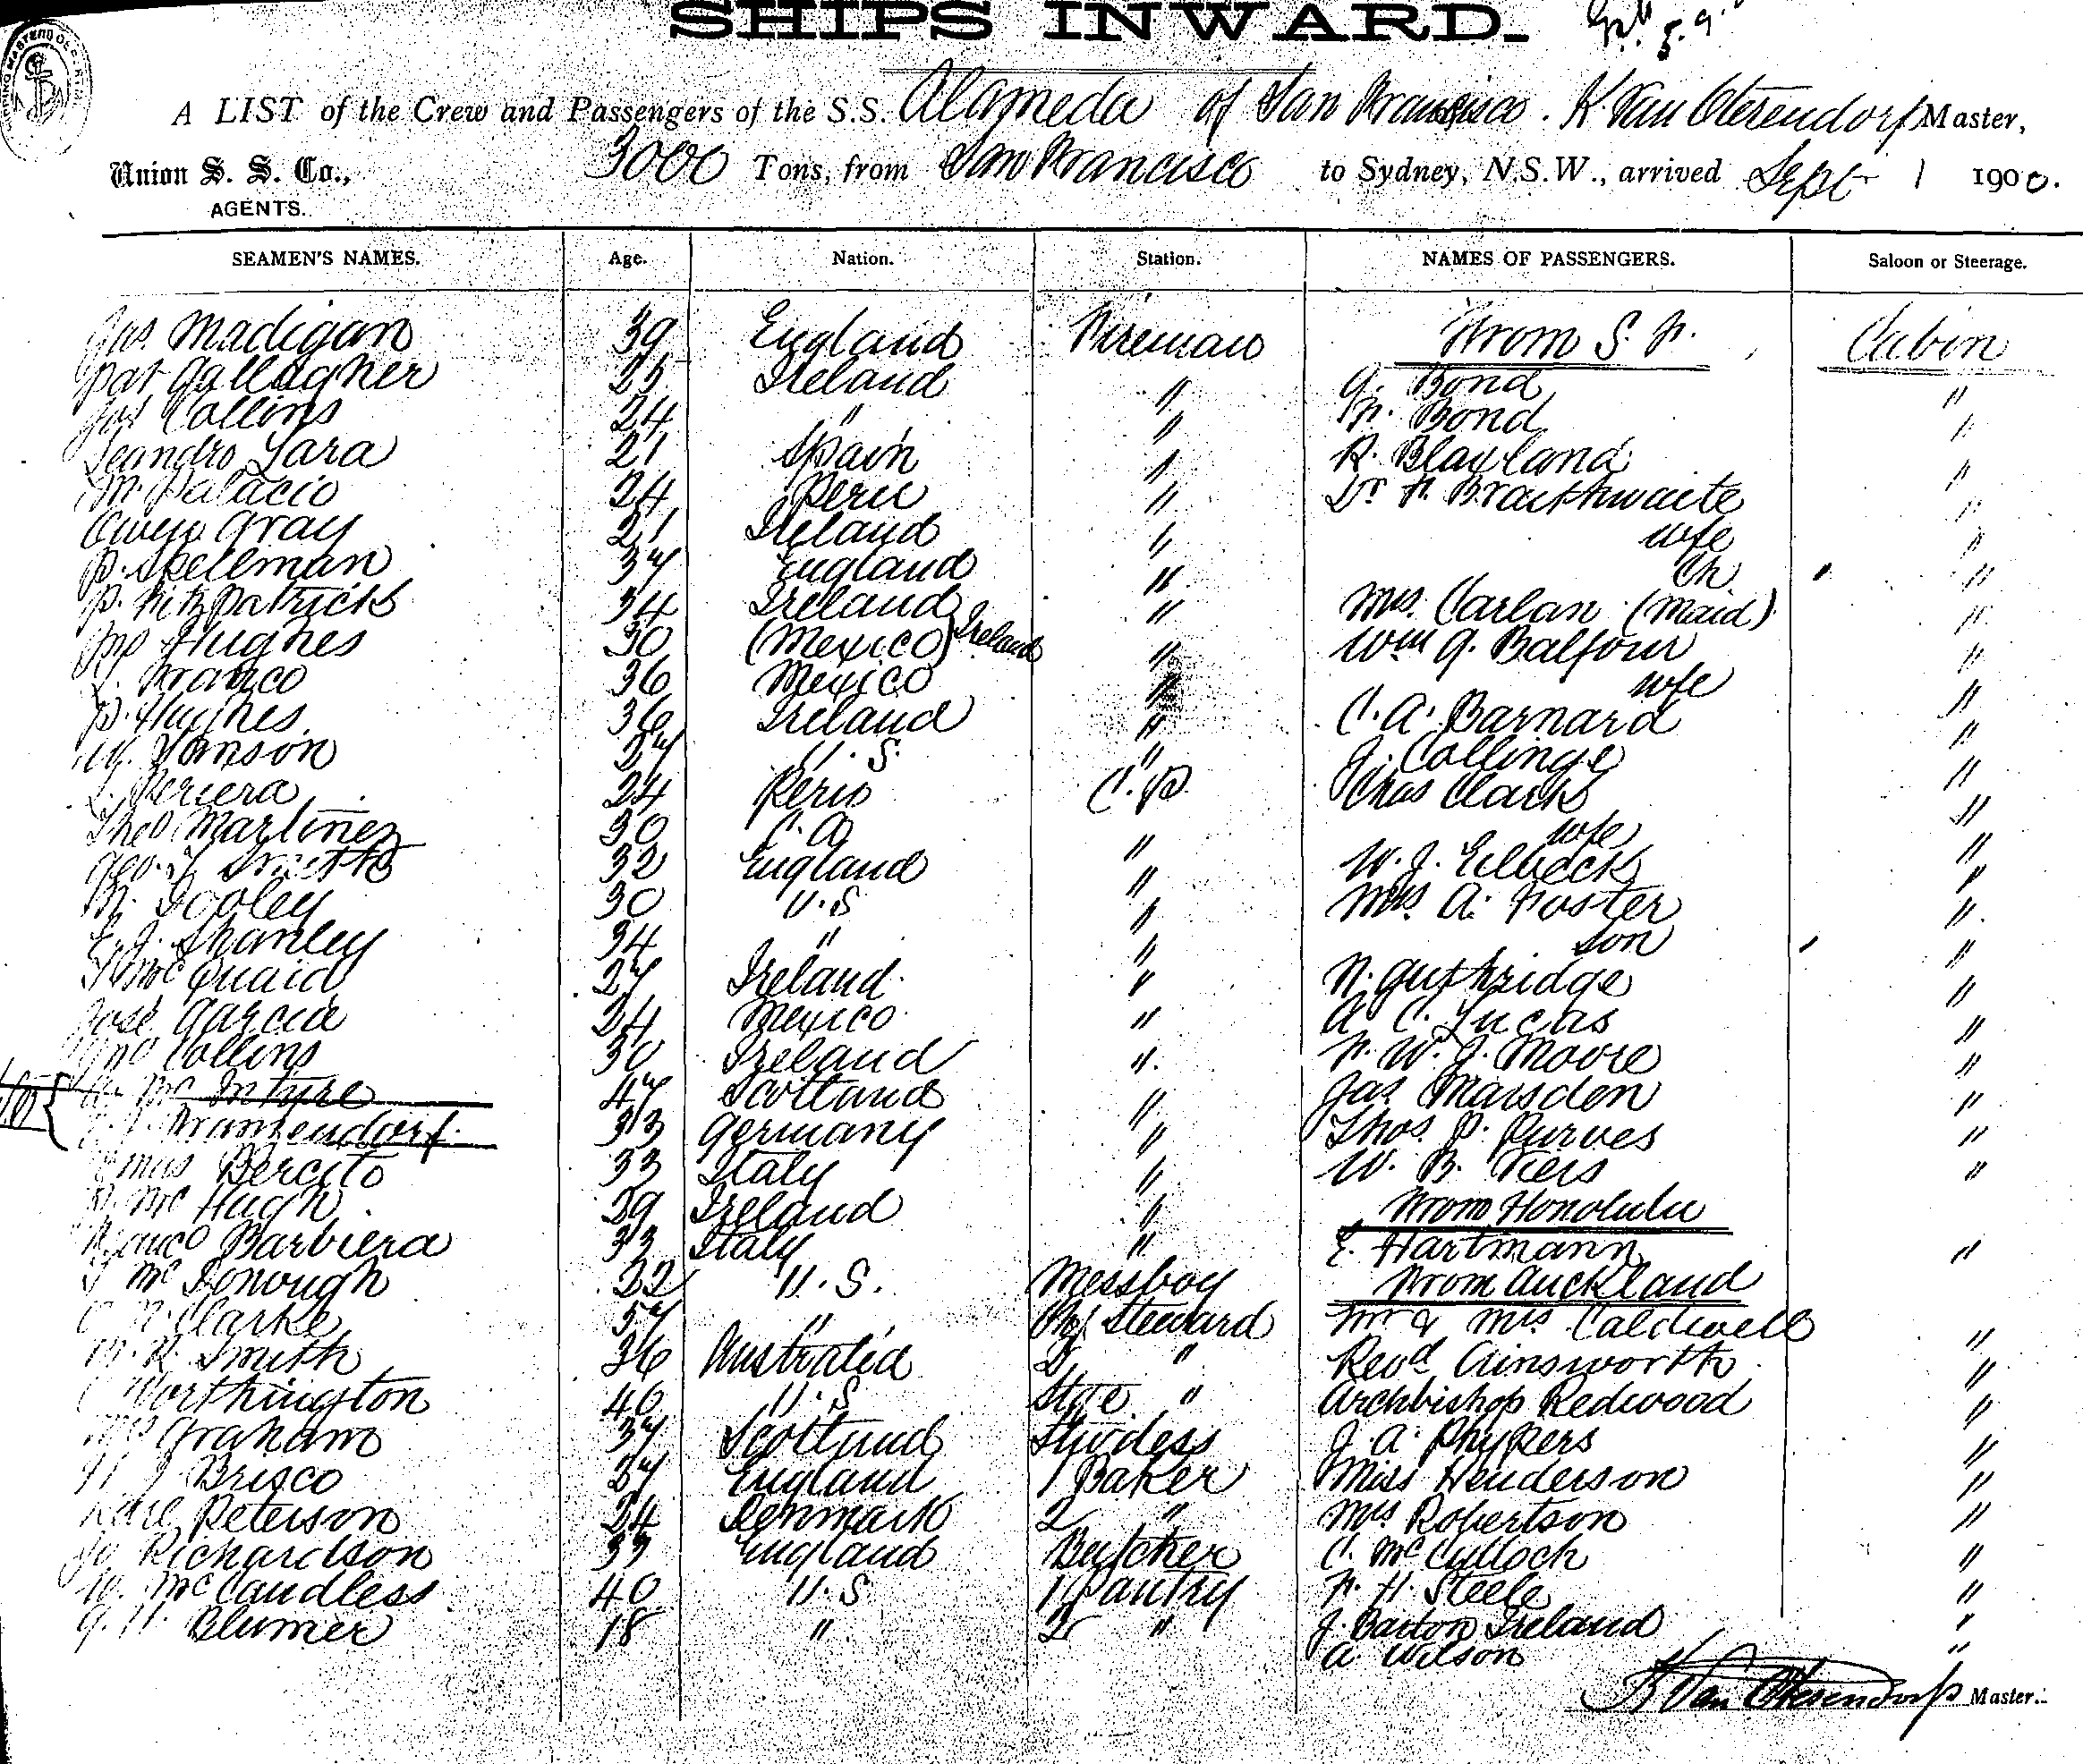 SHIPS INWARD.
A LIST of the Crew and Passengers of the S.S. Alameda of San Francisco. K Van Oterendorp Master,
Union S. S. Co., 3000 Tons, from San Francisco to Sydney, N.S.W., arrived Sept 1 1900.
AGENTS.
SEAMEN'S NAMES. Age. Nation. Station. NAMES OF PASSENGERS. Saloon or Steerage.
Jas. Madigan 39 England Fireman From S. F. Cabin
Pat Gallagher 25 Ireland " G. Bond "
Jas Collins 24 " " F. Bond "
Leandro Lara 21 Spain " R. Blaxland "
M. Palacio 24 Peru " Dr F. Braithwaite "
Owen Gray 21 Ireland " wfe "
P. Skellman 37 England " Ch "
P. Fitzpatrick 34 Ireland " Mrs. Carlan (Maid) "
Jno Hughes 30 (Mexico) Ireland " Wm G. Balfour "
Franco 36 Mexico " wfe "
P. Hughes 36 Ireland " C. A. Barnard "
W. Janson 27 U. S. " J. Collinge "
Periera 24 Peru C. P. Chas Clark "
Theo Martinez 30 C. A " wfe "
Geo. Smith 32 England " W. J. "
M. Dooley 30 U. S " Mrs. A. Foster "
Shanley 34 " " son "
McQuaid 27 Ireland " N. Guthridge "
José Garcia 24 Mexico " A C. Lucas "
Jno Collins 30 Ireland " F. W. J. Moore "
McIntyre 47 Scotland " Jas Marsden "
33 Germany " Thos. P. Purves "
Bercito 33 Italy " W. B. "
McHugh 29 Ireland " From Honolulu
Franco Barbiera 33 Italy " E. Hartmann "
McDonough 22 U. S. Messboy From Auckland
Clarke 57 " Steward Mr & Mrs Caldwell "
Smith 36 Australia 2 " Revd Ainsworth "
Worthington 40 U. S " Archbishop Redwood "
Graham 37 Scotland Stwdess J. A. Phypers "
Brisco 27 England 1 Baker Miss Henderson "
Peterson 24 Denmark 2 " Mrs Robertson "
Richardson 33 England Butcher C. McCulloch "
W. McCandless 40 U. S 1 Pantry F. H. Steele "
G. H. Blumer 18 " 2 " J. Barton Ireland "
A Wilson "
K Van Oterendorp Master.